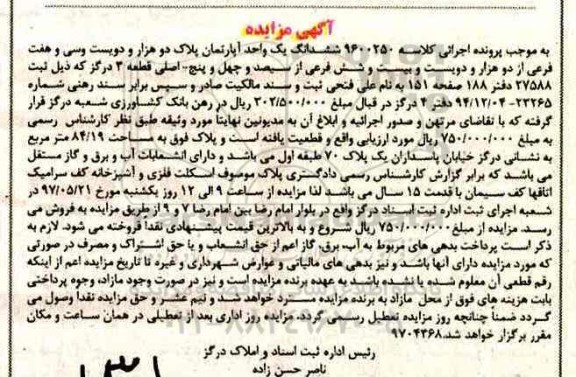 آگهی مزایده
به موجب پرونده اجرائی کلاسه ۹۶۰۰۲۵۰ ششدانگ یک واحد آپارتمان پلاک دو هزار و دویست و سی و هفت
فرعی از دو هزار و دویست و بیست و شش فرعی از سیصد و چهل و پنج- اصلی قطعه ۳ درگز که ذیل ثبت
۲۷۵۸۸ دفتر ۱۸۸ صفحه ۱۵۱ به نام علی فتحی ثبت و سند مالکیت صادر و سپس برابر سند رهنی شماره
۲۳۲۶۵- ۹۴/۱۲/۰۴ دفتر ۳ درگز در قبال مبلغ ۳۰۲/۵۰۰/۰۰۰ ریال در رهن بانک کشاورزی شعبه درگز قرار
گرفته که با تقاضای مرتهن و صدور اجرائیه و ابلاغ آن به مدیونین نهایتا مورد وثیقه طبق نظر کارشناس رسمی
به مبلغ ۷۵۰/۰۰۰/۰۰۰ ریال مورد ارزیابی واقع و قطعیت یافته است و پلاک فوق به مساحت ۸۴/۱۹ متر مربع
به نشانی درگز خیابان پاسداران یک پلاک ۷۰ طبقه اول می باشد و دارای انشعابات آب و برق و گاز مستقل
می باشد که برابر گزارش کارشناس رسمی دادگستری پلاک موصوف اسکلت فلزی و آشپزخانه کف سرامیک
اتاقها کف سیمان با قدمت ۱۵ سال می باشد لذا مزایده از ساعت ۹ الی ۱۲ روز یکشنبه مورخ ۹۷/۰۵/۲۱ در
شعبه اجرای ثبت اداره ثبت اسناد درگز واقع در بلوار امام رضا بین امام رضا ۷ و ۹ از طریق مزایده به فروش می
رسد. مزایده از مبلغ ۷۵۰/۰۰۰/۰۰۰ ریال شروع و به بالاترین قیمت پیشنهادی نقدا فروخته می شود. لازم به
ذکر است پرداخت بدهی های مربوط به آب، برق، گاز اعم از حق انشعاب و یا حق اشتراک و مصرف در صورتی
که مورد مزایده دارای آنها باشد و نیز بدهی های مالیاتی و عوارض شهرداری و غیره تا تاریخ مزایده اعم از اینکه
رقم قطعی آن معلوم شده یا نشده باشد به عهده برنده مزایده است و نیز در صورت وجود مازاد، وجوه پرداختی
بابت هزینه های فوق از محل مازاد به برنده مزایده مسترد خواهد شد و نیم عشر و حق مزایده نقدا وصول می
گردد ضمناً چنانچه روز مزایده تعطیل رسمی گردد، مزایده روز اداری بعد از تعطیلی در همان ساعت و مکان
مقرر برگزار خواهد شد. ۹۷۰۴۳۶۸
رئیس اداره ثبت اسناد و املاک درگز
ناصر حسن زاده